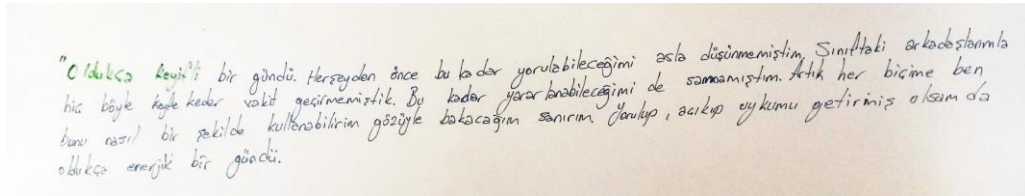 "Oldukça keyifli bir gündü. Herşeyden önce bu kadar yorulabileceğimi asla düşünmemiştim. Sınıftaki arkadaşlarımla
hiç böyle keder vakit geçirmemiştik. Bu kadar yararlanabileceğimi de sanmamıştım. Artık her biçime ben
bunu nasıl bir şekilde kullanabilirim gözüyle bakacağım sanırım. Yorulup, acıkıp uykumu getirmiş olsam da
oldukça enerjik bir gündü.